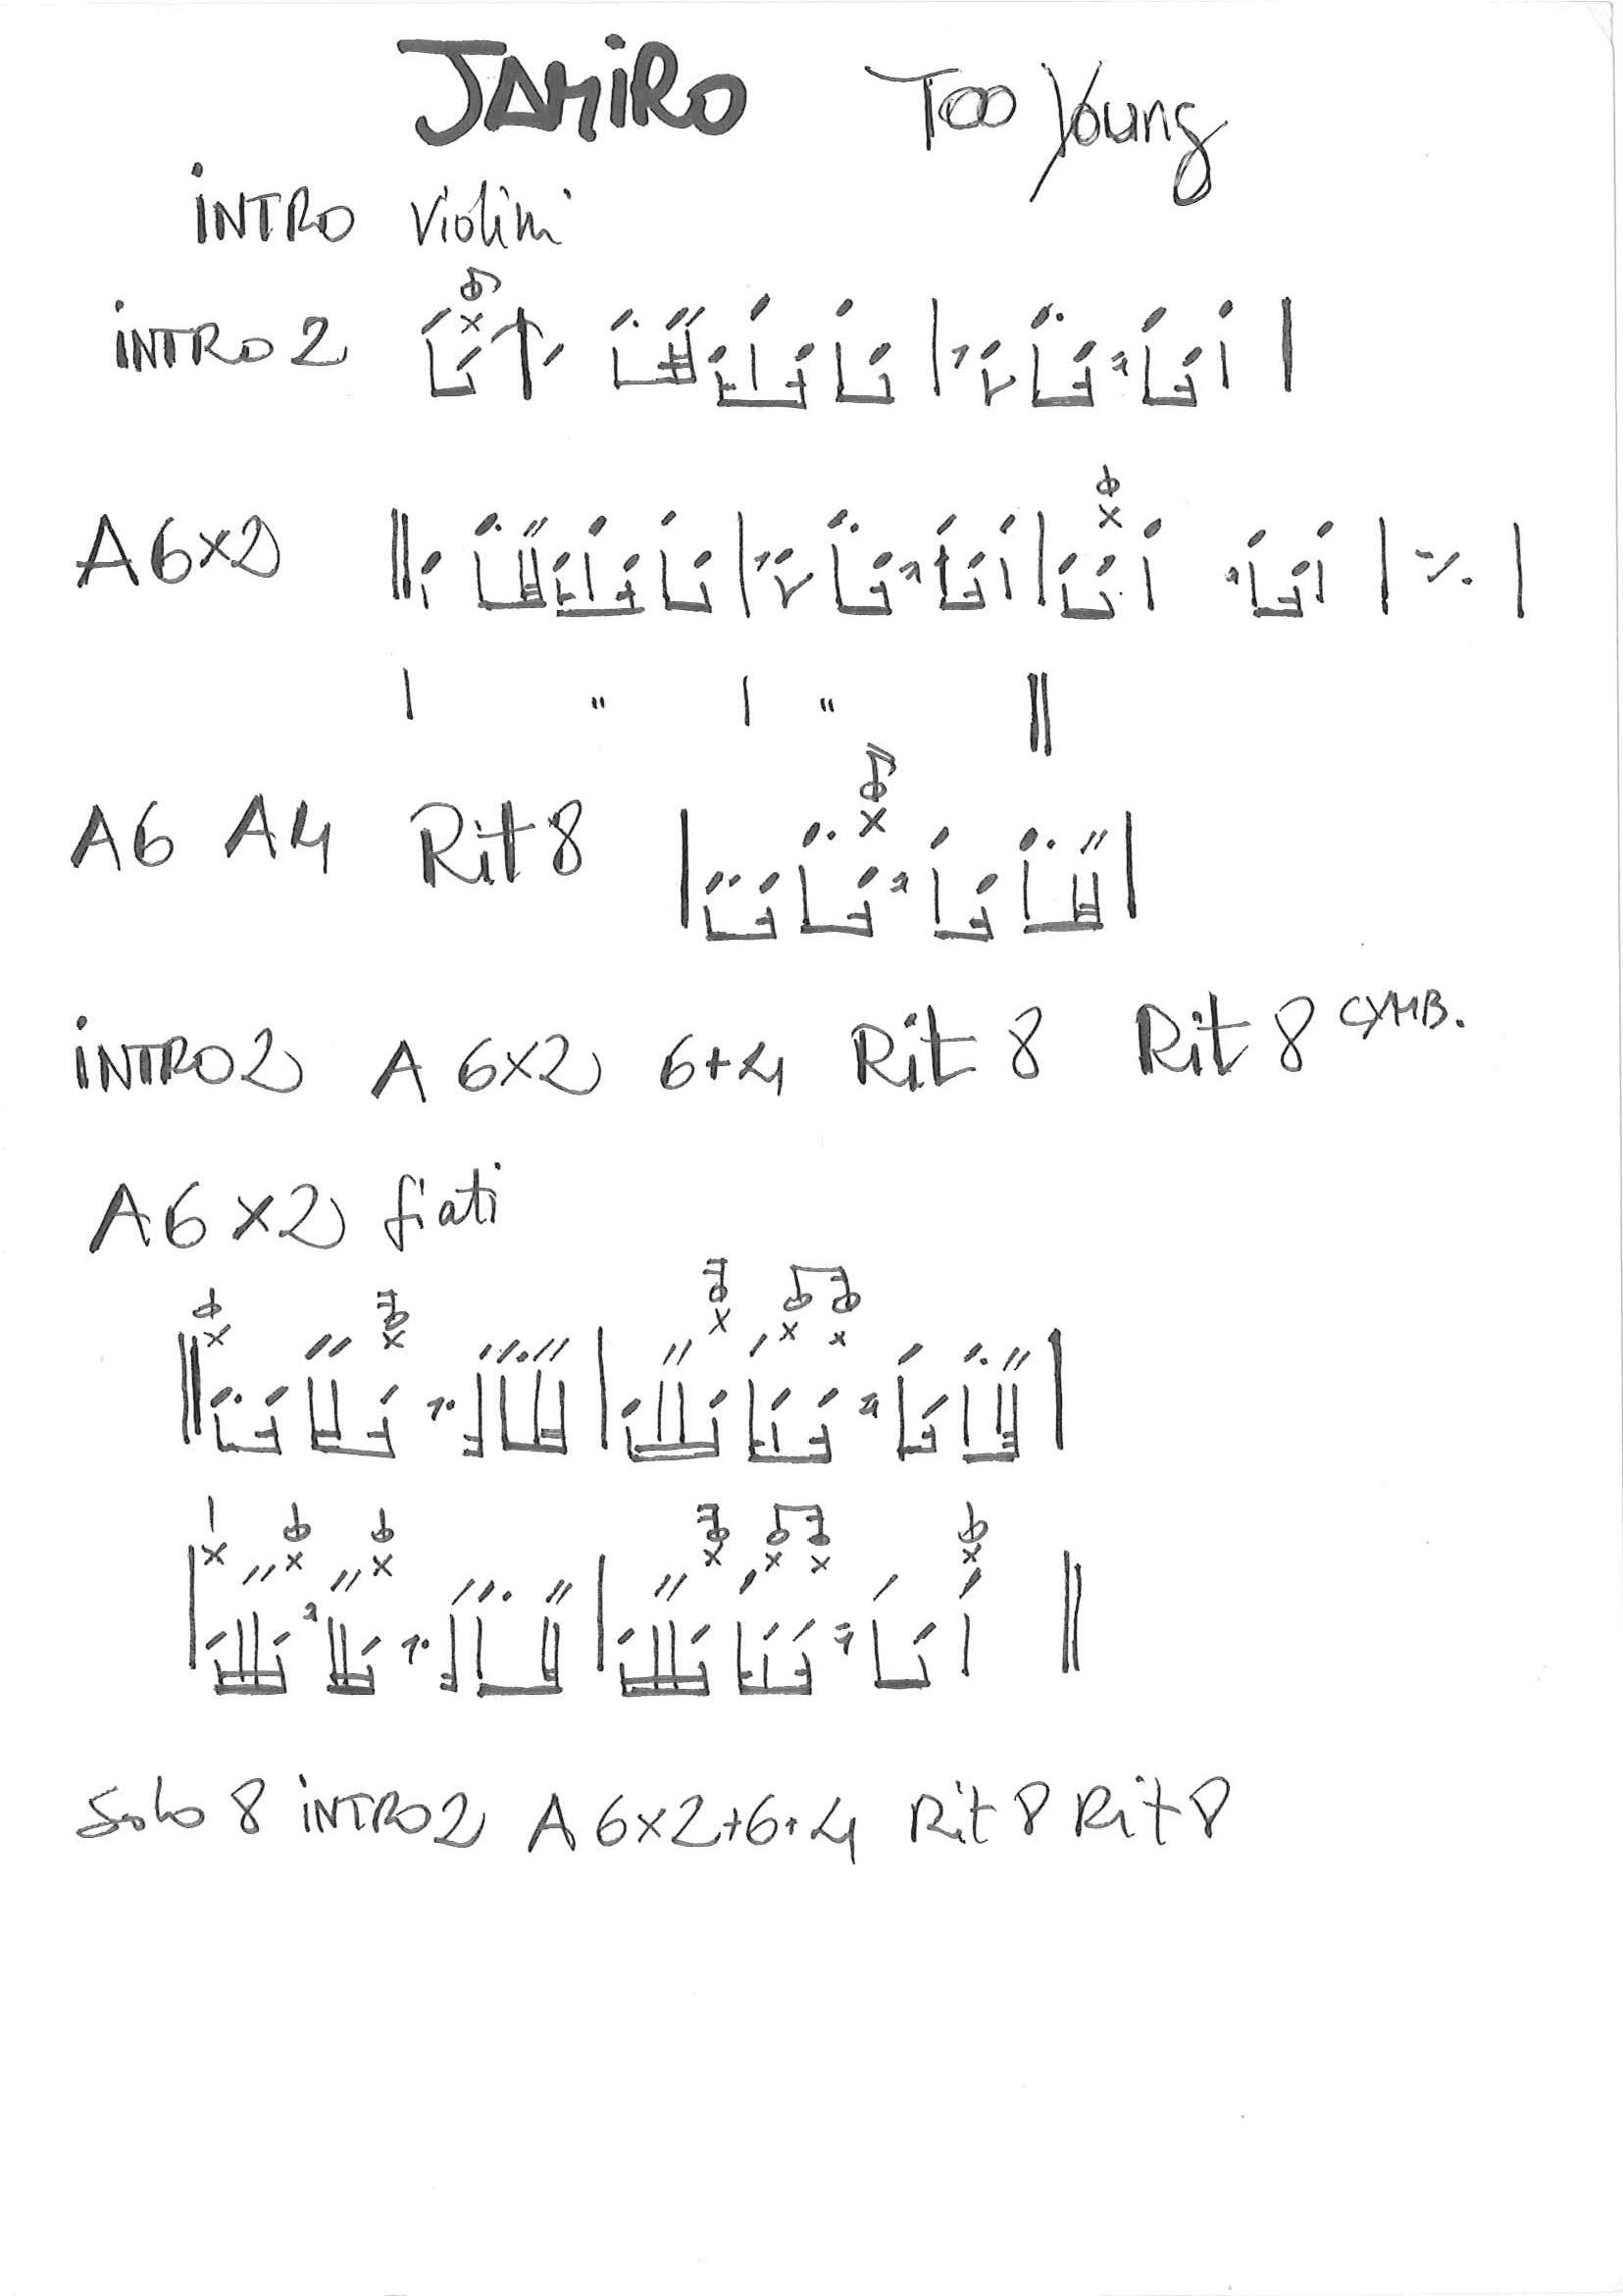 JAMIRO Too Young
INTRO Violini
INTRO 2
A 6x2 ٪
" "
A6 A4 Rit 8
INTRO 2 A 6x2 6+4 Rit 8 Rit 8 CYMB.
A6 x2 fiati
Solo 8 INTRO 2 A 6x2+6+4 Rit 8 Rit 8